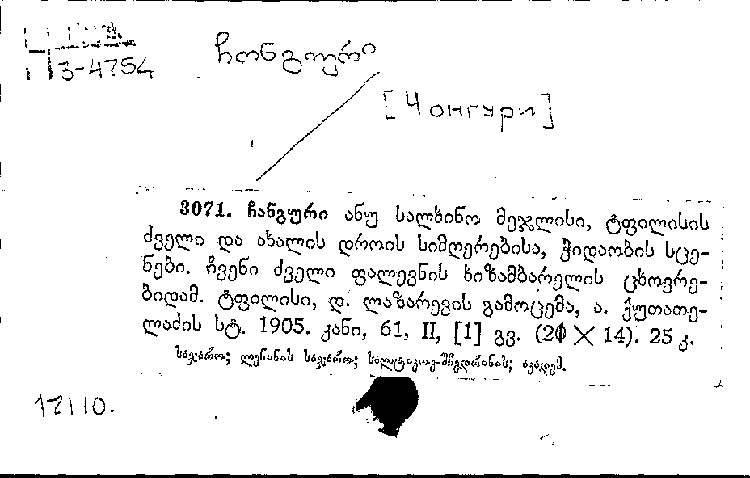 ჩონგური
Ч3-4754
[Чонгури]
3071. ჩანგური ანუ სალხინო მეჯლისი, ტფილისის
ძველი და ახალის დროის სიმღერებისა, ჭიდაობის სცე-
ნები. ჩვენი ძველი ფალევნის ხიზამბარელის ცხოვრე-
ბიდამ. ტფილისი, დ. ლაზარევის გამოცემა, ა. ქუთათე-
ლაძის სტ. 1905. კანი, 61, II, [1] გვ. (20 × 14). 25 კ.
საჯარო; ლენინის საჯარო; აკადემ.
12110.